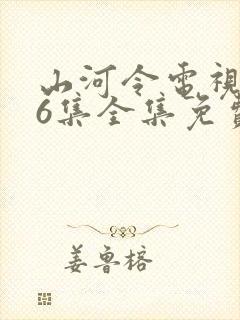 山河令电視
6集全集免費
姜鲁榕